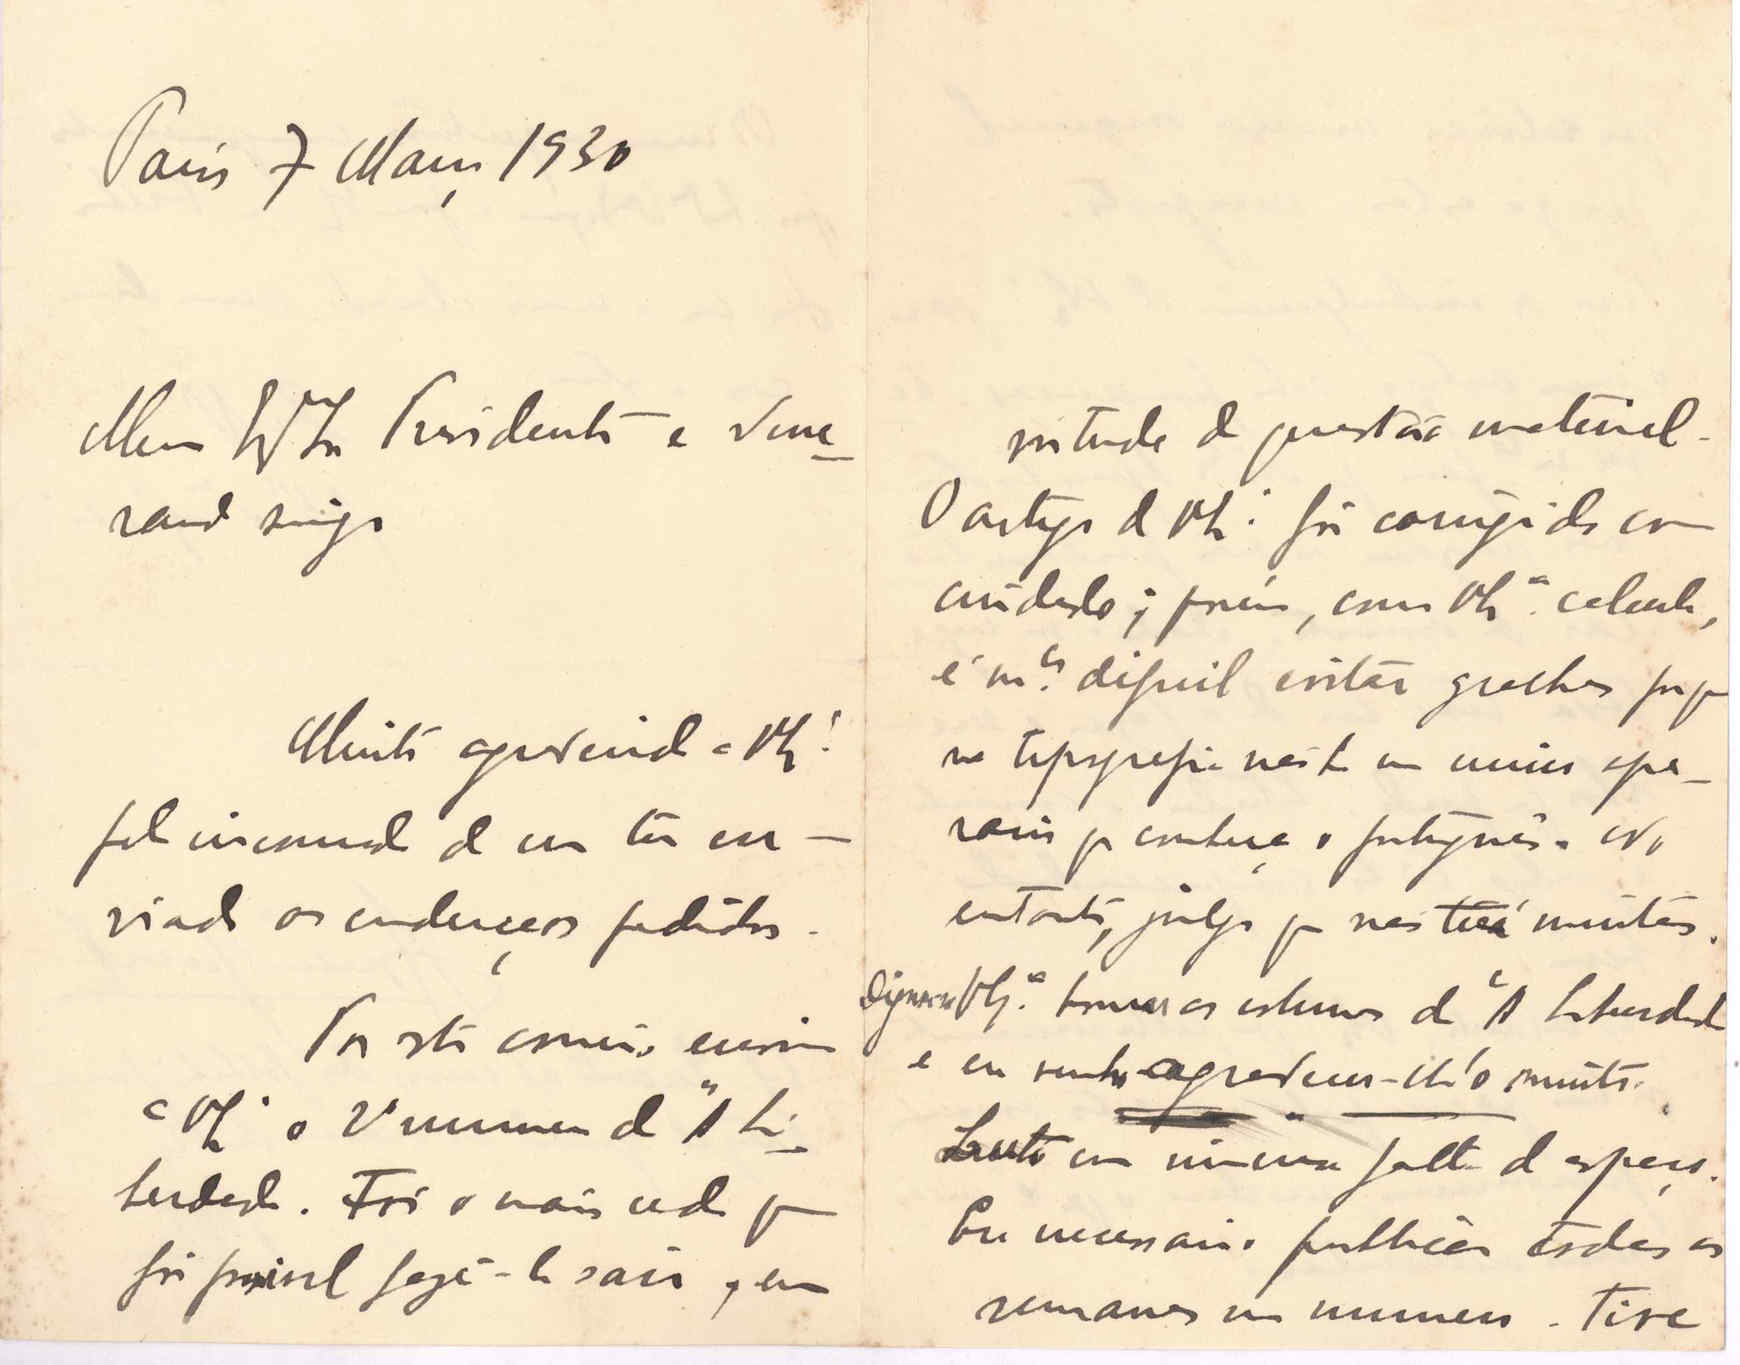 Paris 7 Março 1930
Meu Exmo Sr Presidente e Vene-
rando amigo
Muito agradecido a V. Exª
pelo incomodo de me ter en-
viado os endereços pedidos.
Por este correio envio
a V. Exª o 2º numero d' "A Li-
berdade. Foi o mais cedo que
foi possivel fazê-lo sair, em
virtude de questão material.
O artigo de V. Exª foi corrigido com
cuidado; porém, como V. Exª calcula,
é mto dificil evitar gralhas porque
na tipografia não há um unico ope-
rario que conheça o português. No
entanto, julgo que não terá muitas.
V. Exª honrar as colunas d' "A Liberdade
e eu senhor agradecer-lh'o muito.
Luto com imensa falta de espaço.
Era necessario publicar todas as
semanas um numero. Tive